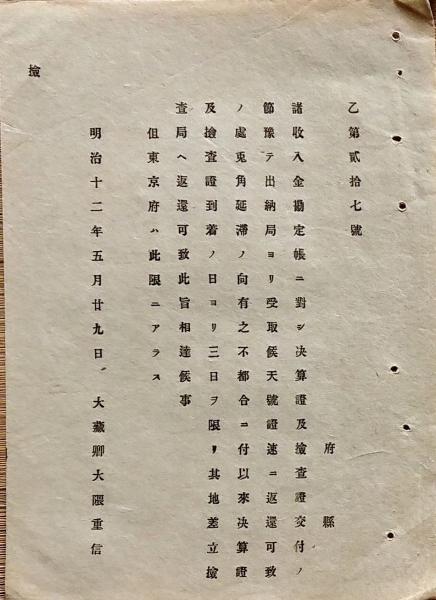 乙第貳拾七號
府縣
諸收入金勘定帳ニ對シ决算證及撿査證交付ノ
節豫テ出納局ヨリ受取候天號證速ニ返還可致
ノ處兎角延滯ノ向有之不都合ニ付以來决算證
及撿査證到着ノ日ヨリ三日ヲ限リ其地差立撿
査局ヘ返還可致此旨相達候事
但東京府ハ此限ニアラス
明治十二年五月廿九日 大藏卿大隈重信
撿